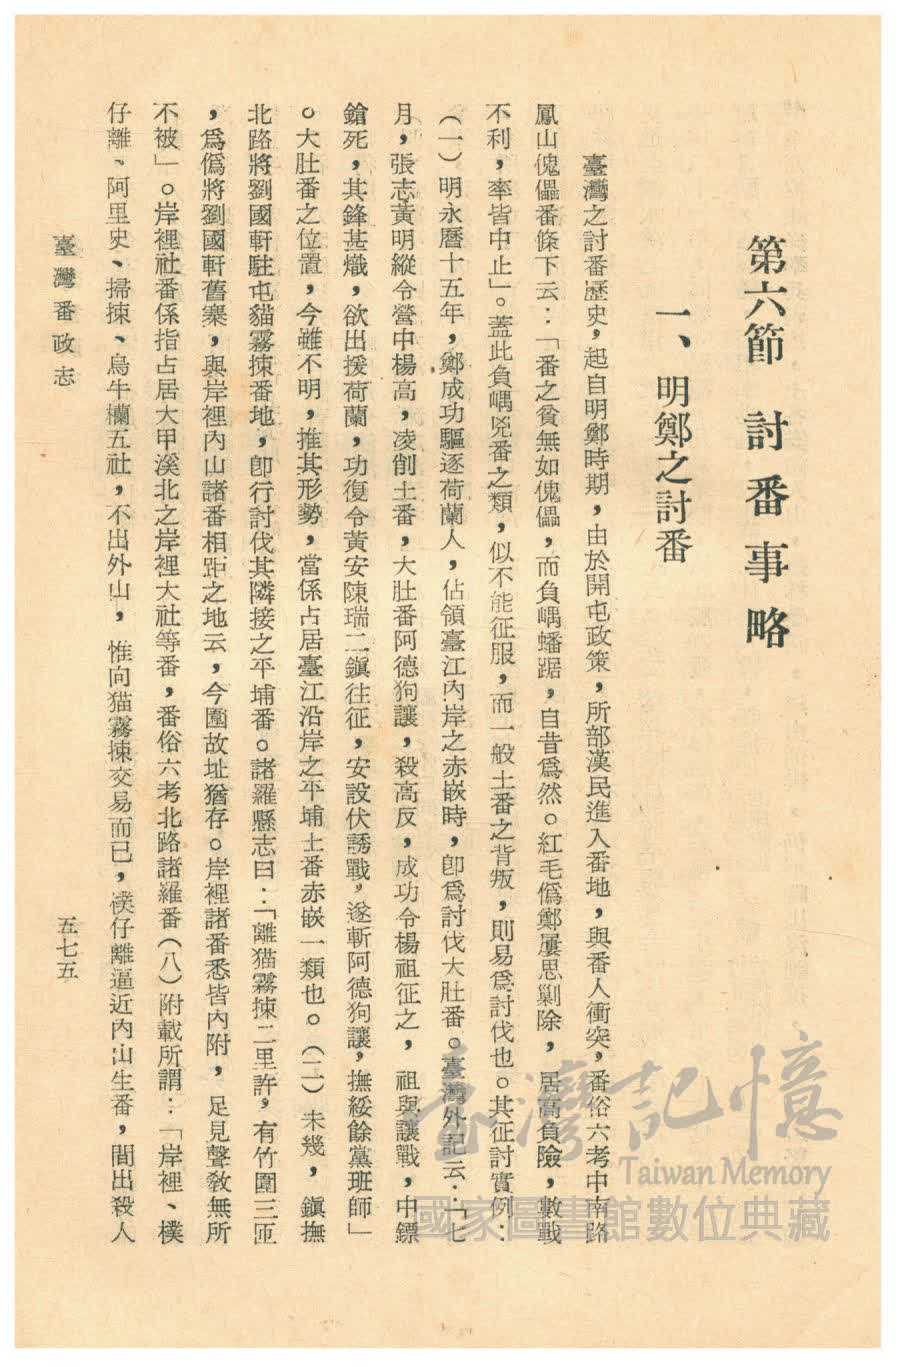 第六節　討番事略
一、明鄭之討番
臺灣之討番歷史，起自明鄭時期，由於開屯政策，所部漢民進入番地，與番人衝突，番俗六考中南路
鳳山傀儡番條下云：「番之貧無如傀儡，而負嵎蟠踞，自昔爲然。紅毛僞鄭屢思剿除，居高負險，數戰
不利，率皆中止」。蓋此負嵎兇番之類，似不能征服，而一般土番之背叛，則易爲討伐也。其征討實例：
（一）明永曆十五年，鄭成功驅逐荷蘭人，佔領臺江內岸之赤嵌時，卽爲討伐大肚番。臺灣外記云：「七
月，張志黃明縱令營中楊高，凌削土番，大肚番阿德狗讓，殺高反，成功令楊祖征之，祖與讓戰，中鏢
鎗死，其鋒甚熾，欲出援荷蘭，功復令黃安陳瑞二鎭往征，安設伏誘戰，遂斬阿德狗讓，撫綏餘黨班師」
。大肚番之位置，今雖不明，推其形勢，當係占居臺江沿岸之平埔土番赤嵌一類也。（二）未幾，鎭撫
北路將劉國軒駐屯貓霧捒番地，卽行討伐其隣接之平埔番。諸羅縣志曰：「離猫霧捒二里許，有竹圍三匝
，爲僞將劉國軒舊寨，與岸裡內山諸番相距之地云，今圍故址猶存。岸裡諸番悉皆內附，足見聲敎無所
不被」。岸裡社番係指占居大甲溪北之岸裡大社等番，番俗六考北路諸羅番（八）附載所謂：「岸裡、樸
仔離、阿里史、掃捒、烏牛欄五社，不出外山，惟向猫霧捒交易而已，樸仔離逼近內山生番，間出殺人
臺灣番政志
五七五
臺灣記憶
Taiwan Memory
國家圖書館數位典藏